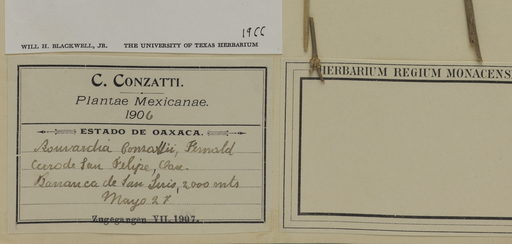 1966
WILL H. BLACKWELL, JR. THE UNIVERSITY OF TEXAS HERBARIUM
HERBARIUM REGIUM MONACENS
C. CONZATTI.
Plantae Mexicanae.
1906
ESTADO DE OAXACA.
Bouvardia Conzattii, Fernald
Cerro de San Felipe, Oax.
Barranca de San Luis, 2,000 mts
Mayo 28
Zugegangen VII. 1907.